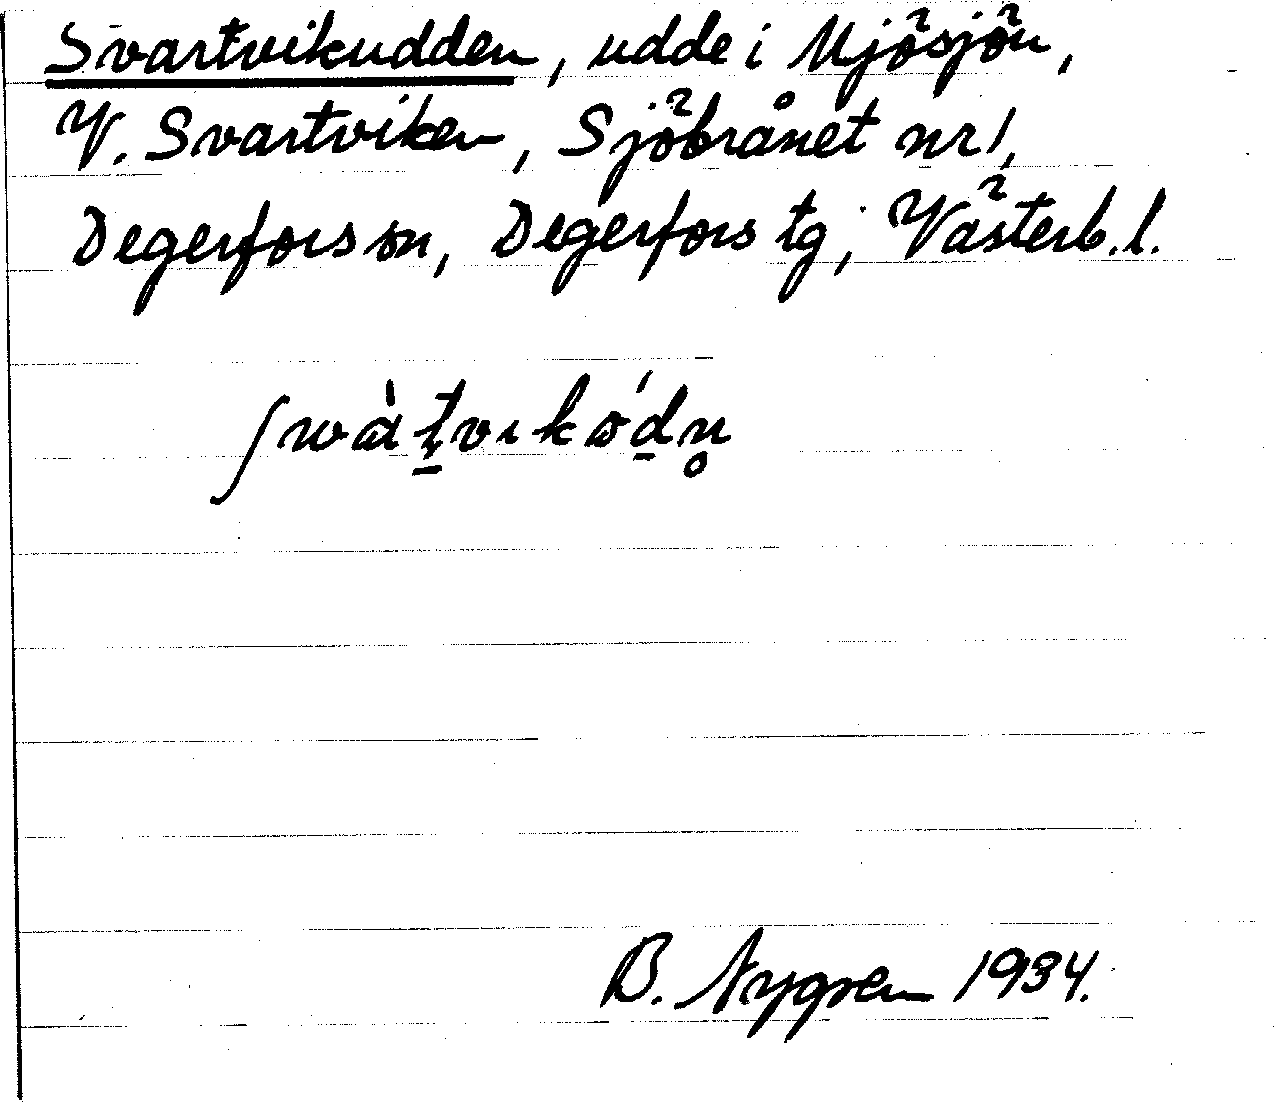 Svartvikudden, udde i Mjösjön,
V. Svartviken, Sjöbrånet nr 1,
Degerfors sn, Degerfors tg; Västerb. l.
ʃwàt̠vɪkǿd̠n̥
B. Nygren 1934.